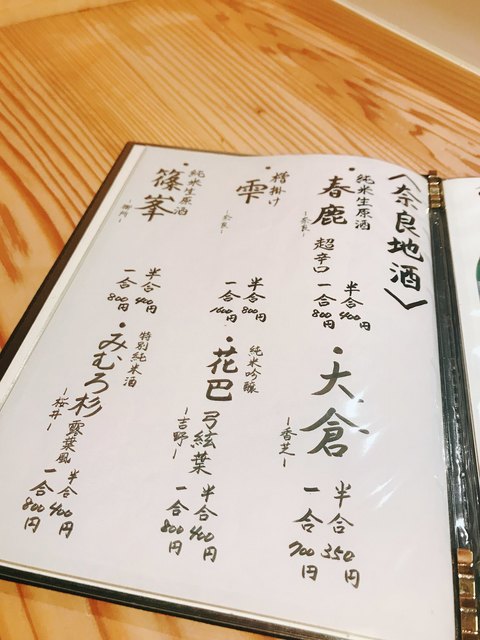 〈奈良地酒〉
・純米生原酒
春鹿 超辛口
-奈良-
半合 400円
一合 800円
・大倉
-香芝-
半合 350円
一合 700円
・槽掛け
雫
-奈良-
半合 800円
一合 1600円
・純米吟醸
花巴 弓絃葉
-吉野-
半合 400円
一合 800円
・純米生原酒
篠峯
半合 400円
一合 800円
・特別純米酒
みむろ杉 露葉風
-桜井-
半合 400円
一合 800円